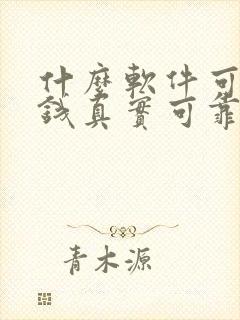 什麼軟件可
錢真實可靠
青木源